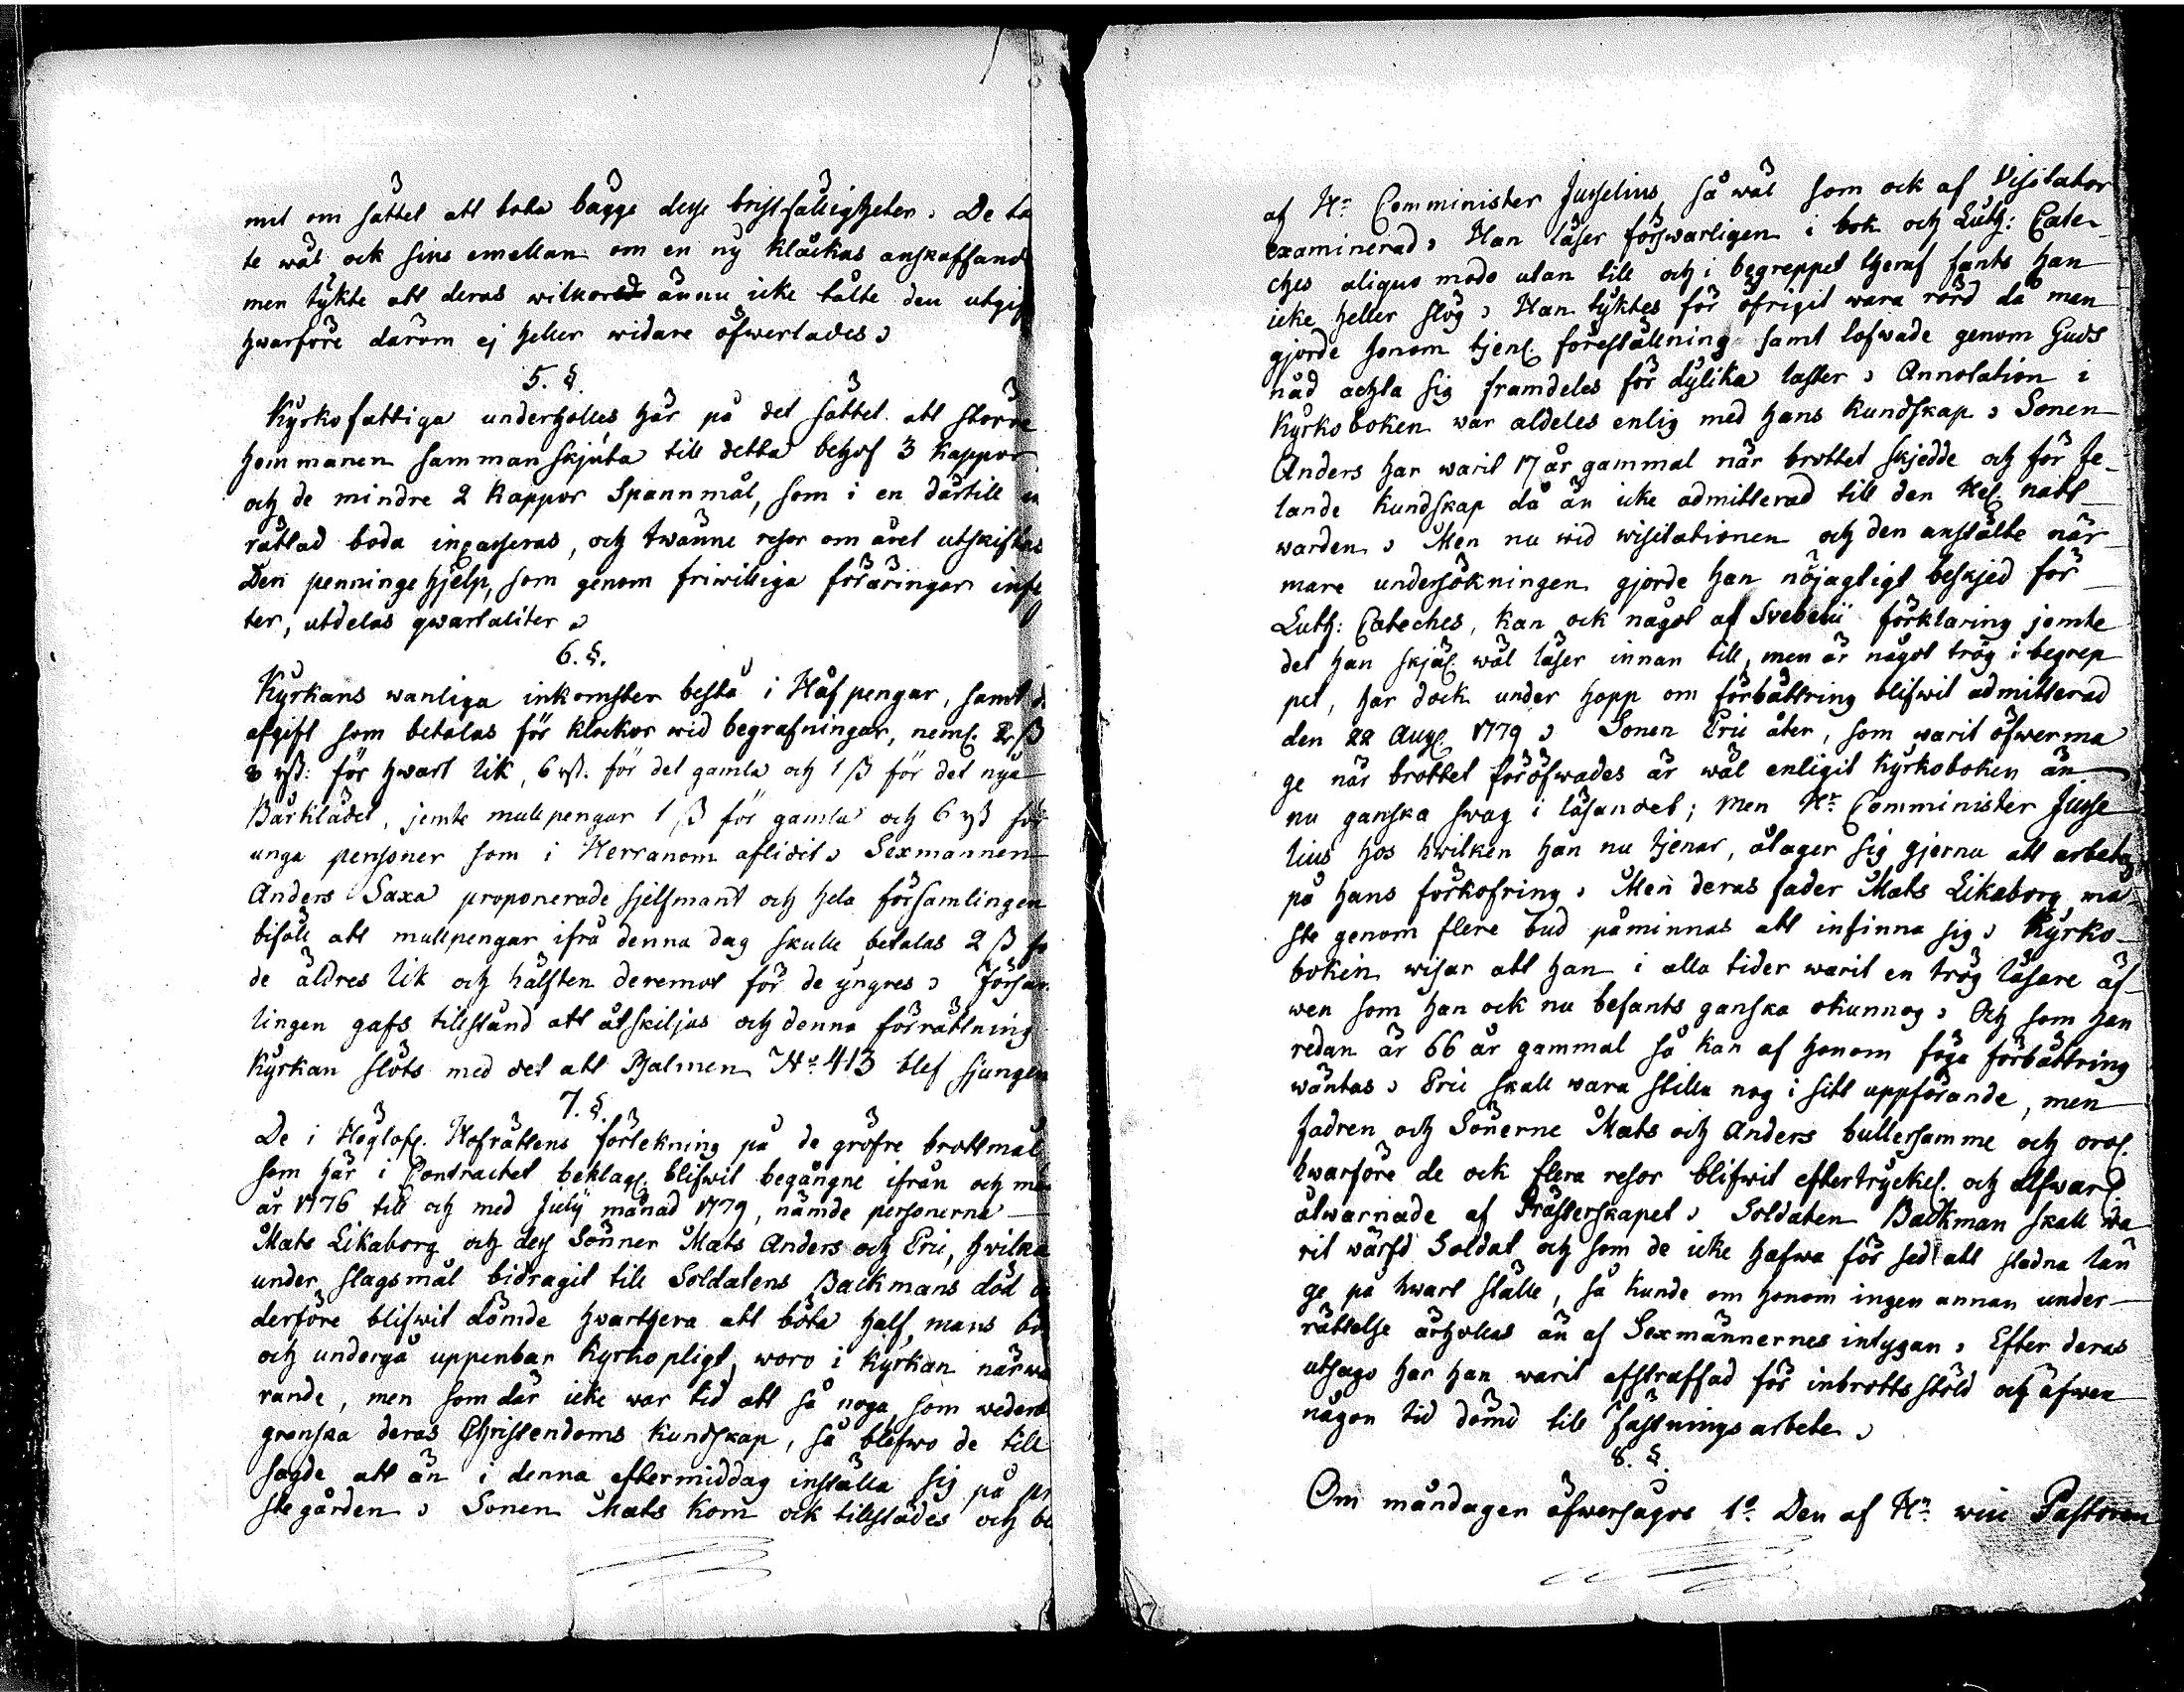 mit om sättet att bota bägge desse bristfälligheter. De ta
te wäl ock sins emellan om en ny Klåckas anskaffand
men tykte att deras wilkor ännu icke tålte den utgif
hwarföre därom ej heller widare öfwerlades.
5. §.
Kyrkofattiga underholles här på det sättet att större
hemmanen samman skjuta till detta behof 3 kappor
och de mindre 2 kappor Spannmål, som i en därtill in
rättad boda incasseras, och twänne resor om året utskiftas
Den penninge hjelp, som genom friwilliga föräringar infl
ter, utdelas qwartaliter.
6. §.
Kyrkans wanliga inkomster bestå i Håfpengar, samt d.
afgift som betalas för klockor wid begrafningar, neml. 2 ß
8 rß: för hwart lik, 6 rß. för det gamla och 1 ß för det nya
Bårklädet, jemte mullpengar 1 ß för gamla och 6 rß för
unga personer som i Herranom aflidit. Sexmannen
Anders Saxa proponerade sjelfmant och hela församlingen
biföll att mullpengar ifrå denna dag skulle betalas 2 ß fö
de äldres lik och hälften deremot för de yngres. Försam
lingen gafs tillstånd att åtskiljas och denna förrättning
Kyrkan slöts med det att Psalmen No. 413 blef sjungen
7. §.
De i Höglofl. Hofrättens förtekning på de gröfre brottmål
som här i Contractet beklagl. blifwit begångne ifrån och me
år 1776 till och med July månad 1779, nämde personerna
Mats Likaborg och dess Sönner Mats Anders och Eric, hwilka
under slagsmål bidragit till Soldatens Backmans död o
derföre blifwit dömde hwarthera att böta half mans bo
och undergå uppenbar Kyrkopligt, woro i Kyrkan närwa
rande, men som där icke war tid att så noga som wederb
granska deras Christendoms kundskap, så blefwo de till
sagde att än i denna eftermiddag inställa sig på pr
stegården. Sonen Mats kom ock tillstädes och bl
af Hr Comminister Jusselius så wäl som ock af Visitator
examinerad. Han läser förswarligen i bok och Luth: Cate-
ches aliquo modo utan till och i begreppet theraf fants han
icke heller slög. Han tyktes för öfrigit wara rörd då men
gjorde honom tjenl. föreställning samt lofwade genom Guds
nåd achta sig framdeles för dylika laster. Annotation i
Kyrkoboken war aldeles enlig med hans kundskap. Sonen
Anders har warit 17 år gammal när brottet skjedde och för fe-
lande kundskap då än icke admitterad till den Hel. natt
warden. Men nu wid wisitationen och den anstälte när-
mare undersökningen gjorde han nöjagtigt beskjed för
Luth: Cateches, kan ock något af Svebelii förklaring jemte
det han skjäl. wäl läser innan till, men är något trög i begrep
pet, har dock under hopp om förbättring blifwit admitterad
den 22 Aug. 1779. Sonen Eric åter, som warit öfwerma
ge när brottet föröfwades är wäl enligit Kyrkoboken än
nu ganska swag i läsandet; Men Hr Comminister Jusse
lius hos hwilken han nu tjenar, åtager sig gjerna att arbeta
på hans förkofring. Men deras fader Mats Likaborg må
ste genom flere bud påminnas att infinna sig. Kyrko-
boken wisar att han i alla tider warit en trög läsare äf-
wen som han ock nu befants ganska okunnog. Och som han
redan är 66 år gammal så kan af honom föga förbättring
wäntas. Eric skall wara stilla nog i sitt uppförande, men
fadren och Sönerne Mats och Anders bullersamme och orol.
hwarföre de ock flera resor blifwit eftertryckel. och alfwarl.
åtwarnade af Prästerskapet. Soldaten Backman skall wa
rit wärfd Soldat och som de icke hafwa för sed att stadna län
ge på hwart ställe, så kunde om honom ingen annan under-
rättelse ärhollas än af Sexmännernes intygan. Efter deras
utsago har han warit afstraffad för inbrotts stöld och äfwen
någon tid dömd till fästningsarbete.
8. §.
Om måndagen öfwersågos 1o Den af Hr vice Pastoren